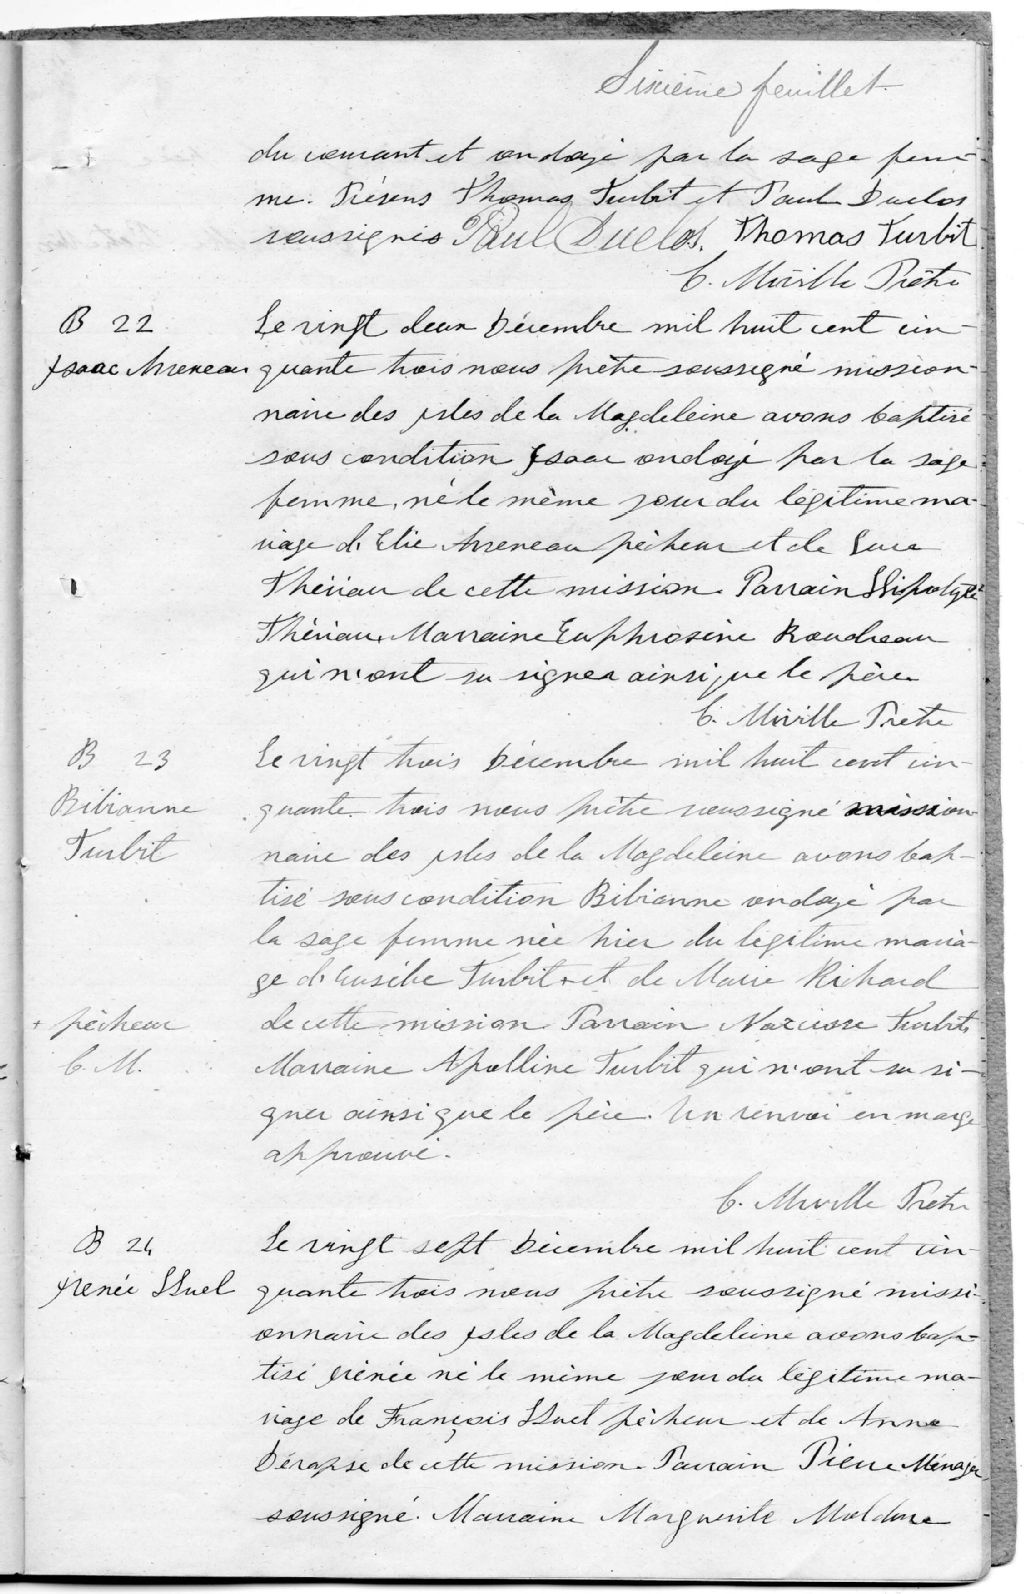 Sixième feuillet
du courant et ondoyé par la sage fem-
me. Présens Thomas Turbit et Paul Duclos
soussignés Paul Duclos. Thomas Turbit
C. Miville Prêtre
B 22
Isaac Arseneau
Le vingt deux Décembre mil huit cent cin-
quante trois nous prêtre soussigné mission-
naire des isles de la Magdeleine avons baptisé
sous condition Isaac ondoyé par la sage
femme, né le même jour du légitime ma-
riage d'Elie Arseneau pêcheur et de Luce
Thériau de cette mission. Parrain Hipolyte
Thériau. Marraine Euphrosine Boudreau
qui n'ont su signer ainsi que le père
C. Miville Prêtre
B 23
Bibianne
Turbit
Le vingt trois Décembre mil huit cent cin-
quante trois nous prêtre soussigné mission-
naire des isles de la Magdeleine avons bap-
tisé sous condition Bibianne ondoyé par
la sage femme née hier du légitime maria-
ge d'Eusèbe Turbit + et de Marie Richard
+ pêcheur
C. M.
de cette mission Parrain Narcisse Turbit,
Marraine Apolline Turbit qui n'ont su si-
gner ainsi que le père. Un renvoi en marge
approuvé.
C. Miville Prêtre
B 24
Irenée Huel
Le vingt sept Décembre mil huit cent cin-
quante trois nous prêtre soussigné missi-
onnaire des isles de la Magdeleine avons bap-
tisé Irénée né le même jour du légitime ma-
riage de François Huel pêcheur et de Anne
Dérapse de cette mission. Parrain Pierre Ménager
soussigné. Marraine Marguerite